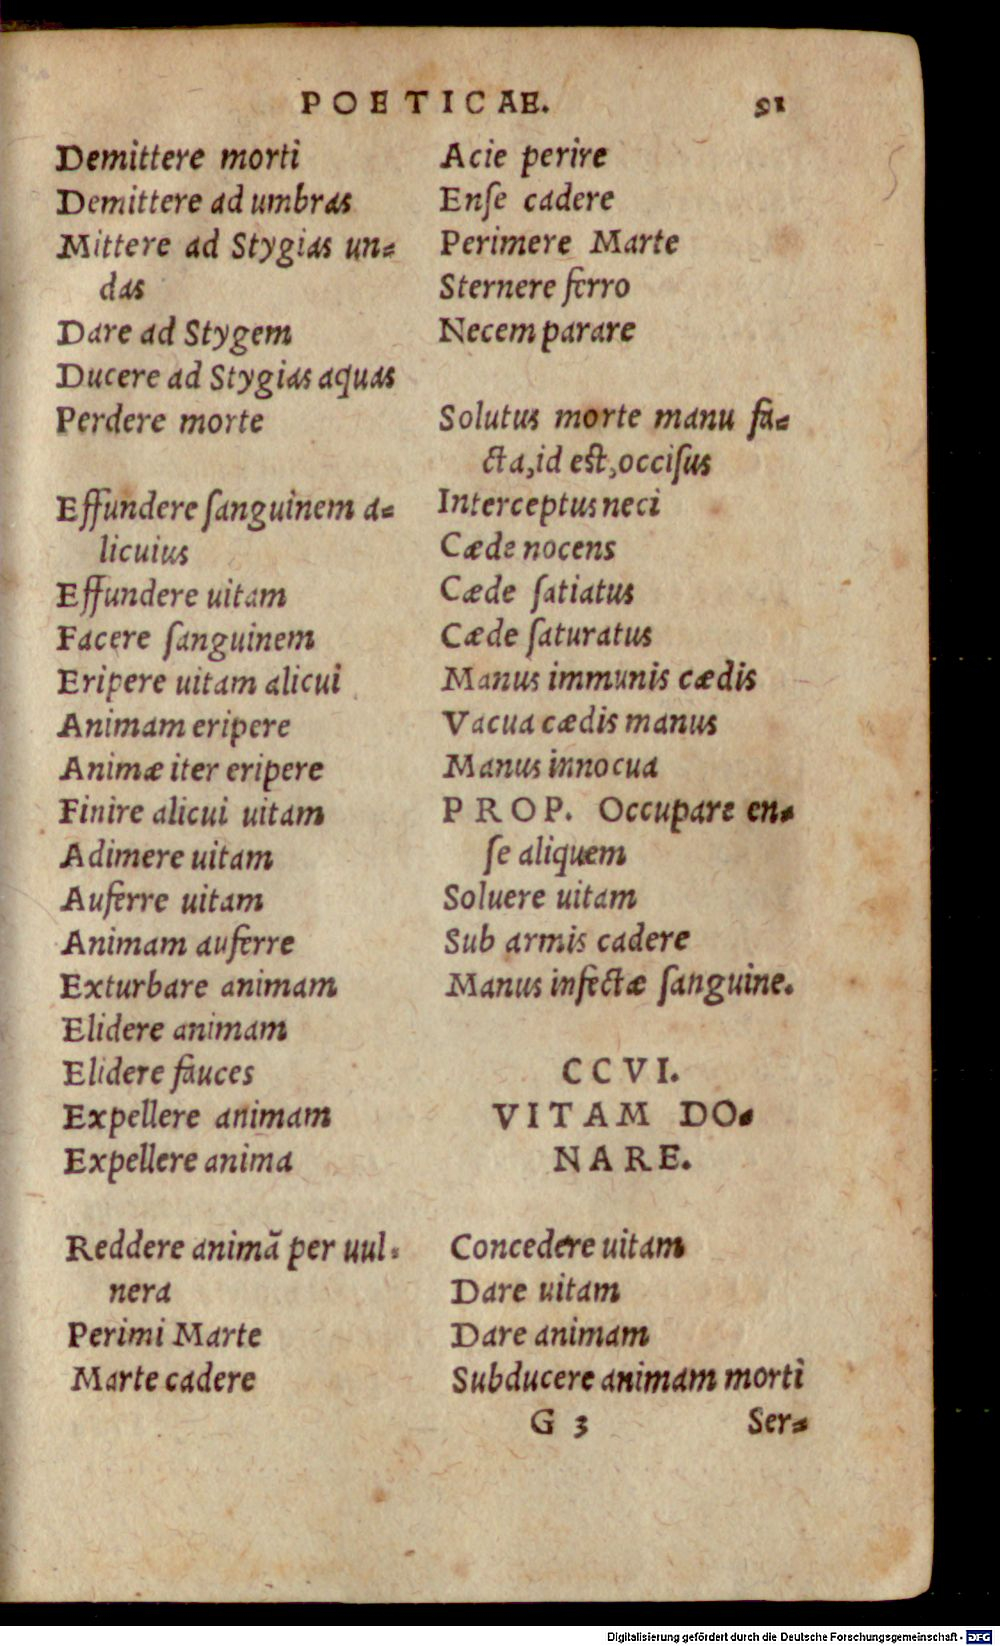 POETICAE. 91
Demittere morti
Demittere ad umbras
Mittere ad Stygias un⸗
das
Dare ad Stygem
Ducere ad Stygias aquas
Perdere morte
Effundere ſanguinem a⸗
licuius
Effundere uitam
Facere ſanguinem
Eripere uitam alicui
Animam eripere
Animæ iter eripere
Finire alicui uitam
Adimere uitam
Auferre uitam
Animam auferre
Exturbare animam
Elidere animam
Elidere fauces
Expellere animam
Expellere anima
Reddere animã per uul⸗
nera
Perimi Marte
Marte cadere
Acie perire
Enſe cadere
Perimere Marte
Sternere ferro
Necem parare
Solutus morte manu fa⸗
cta, id eſt, occiſus
Interceptus neci
Cæde nocens
Cæde ſatiatus
Cæde ſaturatus
Manus immunis cædis
Vacua cædis manus
Manus innocua
PROP. Occupare en⸗
ſe aliquem
Soluere uitam
Sub armis cadere
Manus infectæ ſanguine.
CCVI.
VITAM DO⸗
NARE.
Concedere uitam
Dare uitam
Dare animam
Subducere animam morti
G 3 Ser⸗
Digitalisierung gefördert durch die Deutsche Forschungsgemeinschaft - DFG